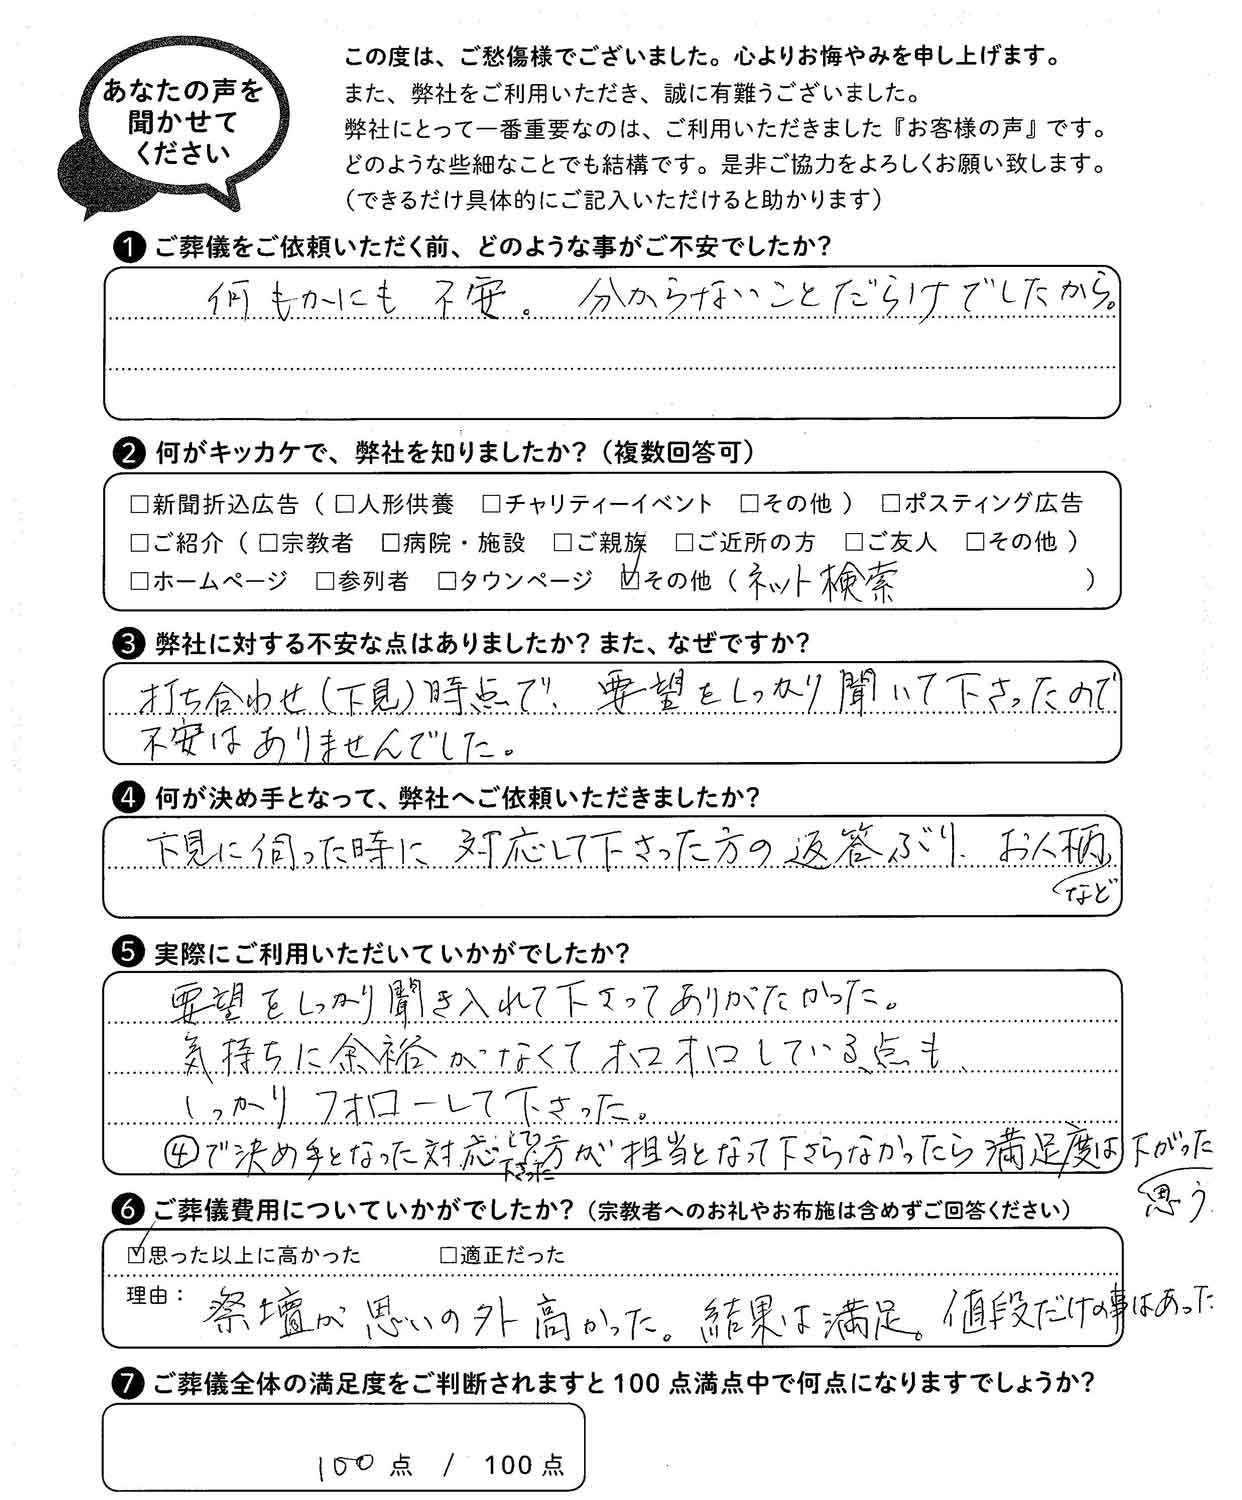 あなたの声を
聞かせて
ください
この度は、ご愁傷様でございました。心よりお悔やみを申し上げます。
また、弊社をご利用いただき、誠に有難うございました。
弊社にとって一番重要なのは、ご利用いただきました『お客様の声』です。
どのような些細なことでも結構です。是非ご協力をよろしくお願い致します。
（できるだけ具体的にご記入いただけると助かります）
❶ ご葬儀をご依頼いただく前、どのような事がご不安でしたか？
何もかにも 不安。 分からないことだらけでしたから。
❷ 何がキッカケで、弊社を知りましたか？（複数回答可）
□新聞折込広告（ □人形供養 □チャリティーイベント □その他 ） □ポスティング広告
□ご紹介（ □宗教者 □病院・施設 □ご親族 □ご近所の方 □ご友人 □その他 ）
□ホームページ □参列者 □タウンページ ☑その他（ ネット検索 ）
❸ 弊社に対する不安な点はありましたか？また、なぜですか？
打ち合わせ（下見）時点で、要望をしっかり聞いて下さったので
不安はありませんでした。
❹ 何が決め手となって、弊社へご依頼いただきましたか？
下見に伺った時に 対応して下さった方の返答ぶり、お人柄、
など
❺ 実際にご利用いただいていかがでしたか？
要望をしっかり聞き入れて下さってありがたかった。
気持ちに余裕がなくてオロオロしている点も、
しっかりフォローして下さった。
④で決め手となった対応して下さった方が担当となって下さらなかったら満足度は下がった
思う。
❻ ご葬儀費用についていかがでしたか？（宗教者へのお礼やお布施は含めずご回答ください）
☑思った以上に高かった □適正だった
理由： 祭壇が思いの外高かった。結果は満足。値段だけの事はあった
❼ ご葬儀全体の満足度をご判断されますと100点満点中で何点になりますでしょうか？
100 点 / 100 点